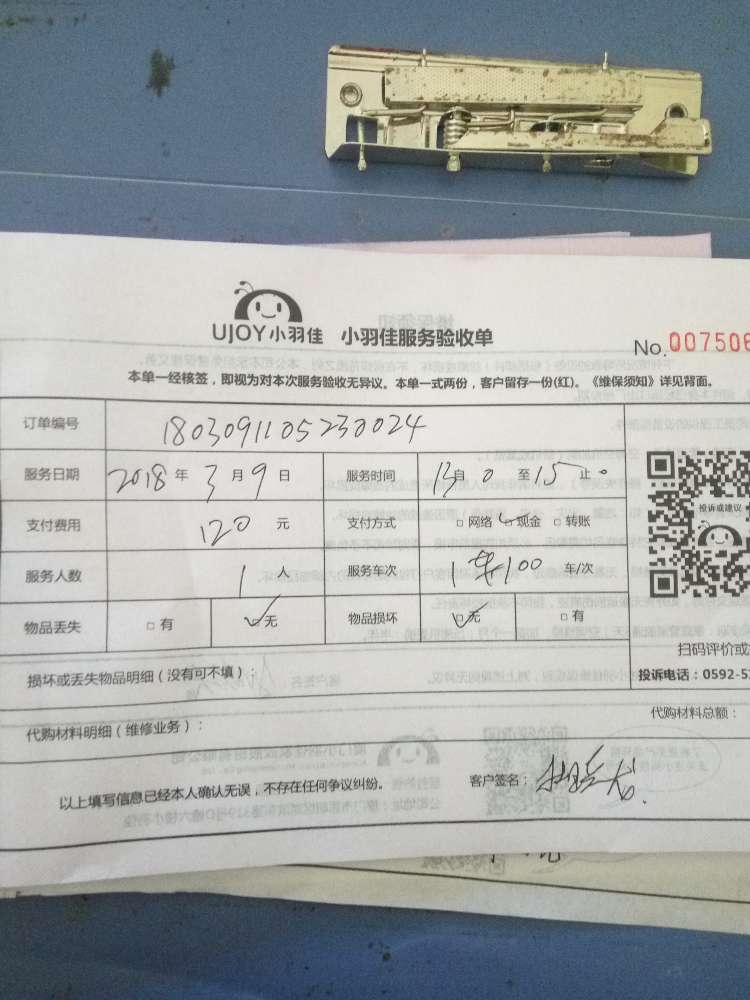 UJOY小羽佳 小羽佳服务验收单
No.007506
本单一经核签，即视为对本次服务验收无异议。本单一式两份，客户留存一份(红)。《维保须知》详见背面。
订单编号 180309110523024
服务日期 2018 年 3 月 9 日 服务时间 13 0 至 15 止
支付费用 120 元 支付方式 □ 网络 □ 现金 □ 转账
服务人数 1 人 服务车次 100 车/次
物品丢失 □ 有 □ 无 物品损坏 □ 无 □ 有
投诉或建议
扫码评价或
损坏或丢失物品明细（没有可不填）：
投诉电话：0592-5
代购材料明细（维修业务）：
代购材料总额：
以上填写信息已经本人确认无误，不存在任何争议纠纷。
客户签名：